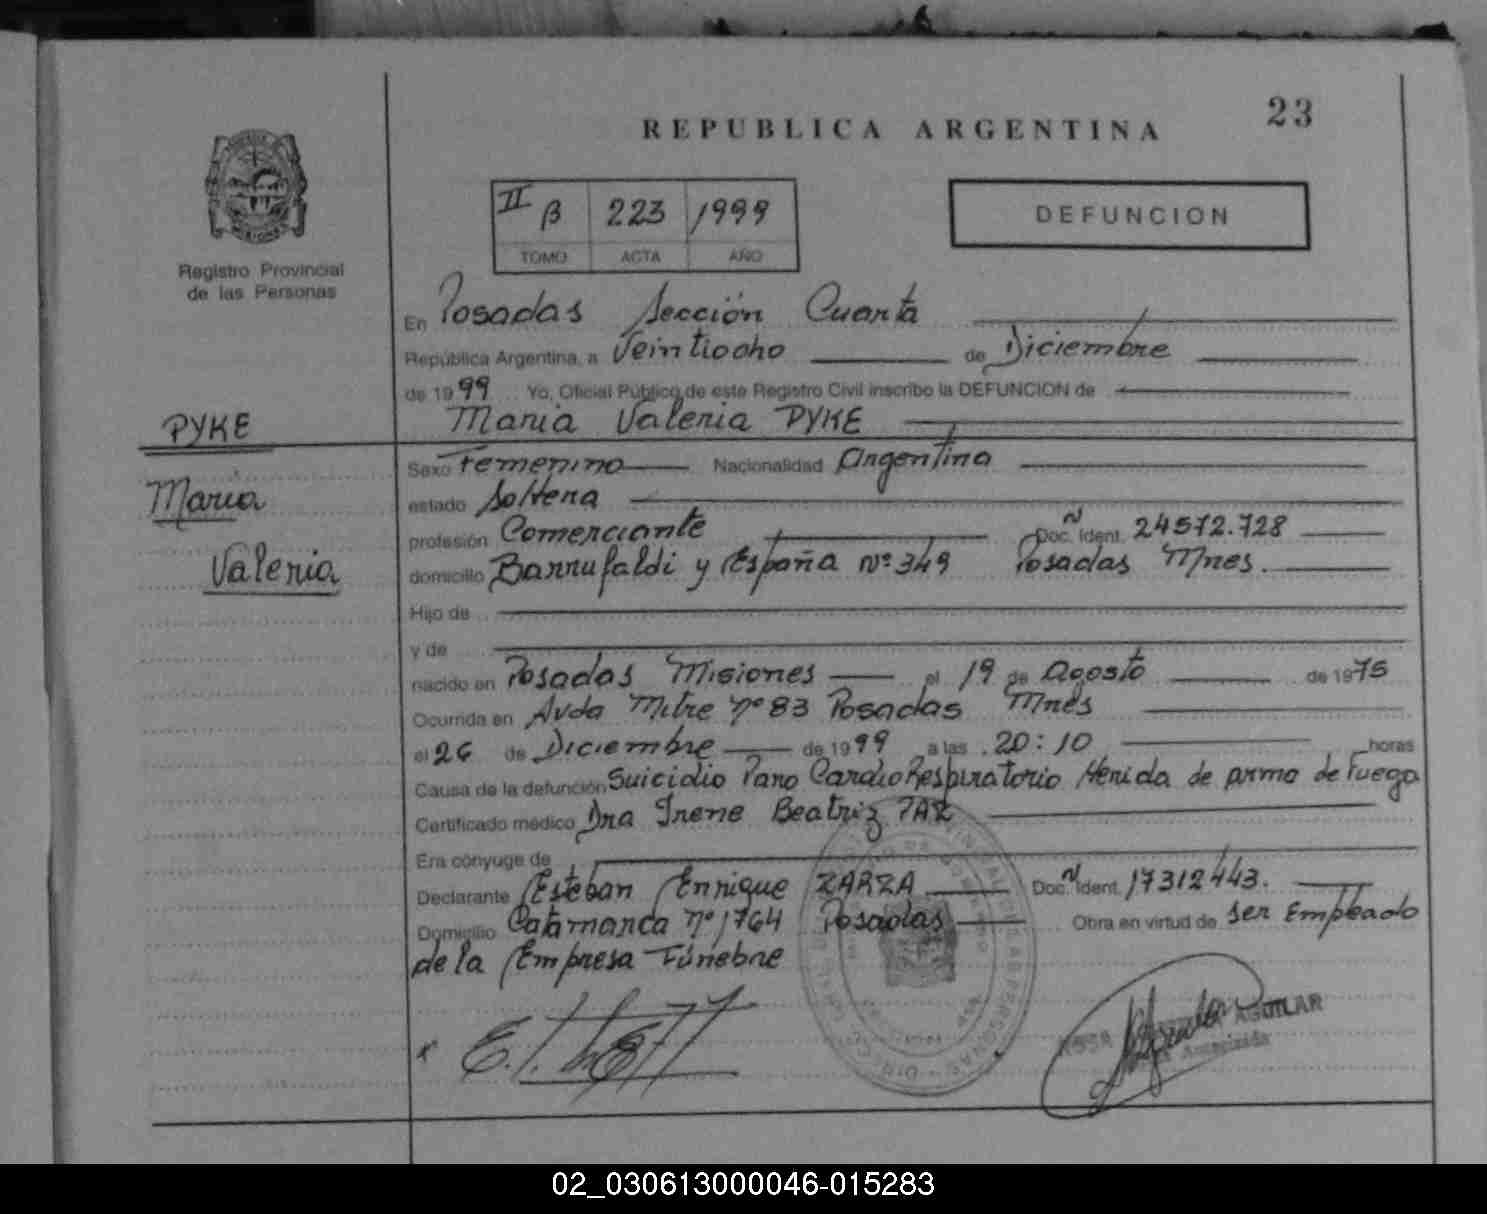 23
REPUBLICA ARGENTINA
II B 223 1999
TOMO ACTA AÑO
DEFUNCION
Registro Provincial
de las Personas
En Posadas Sección Cuarta
República Argentina, a Veintiocho de Diciembre
de 1999 Yo, Oficial Público de este Registro Civil inscribo la DEFUNCION de
Maria Valeria PYKE
PYKE
Maria
Valeria
Sexo Femenino Nacionalidad Argentina
estado Soltera
profesión Comerciante Doc. Ident. 24572.728
domicilio Barrufaldi y España Nº 349 Posadas Mnes.
Hijo de
y de
nacido en Posadas Misiones el 19 de Agosto de 1975
Ocurrida en Avda Mitre nº 83 Posadas Mnes
el 26 de Diciembre de 1999 a las 20:10 horas
Causa de la defunción Suicidio Paro CardioRespiratorio Herida de arma de Fuego
Certificado médico Dra Irene Beatriz PAZ
Era cónyuge de
Declarante Esteban Enrique ZARZA Doc. Ident. 17312443.
Domicilio Catamarca nº 1764 Posadas Obra en virtud de ser Empleado
de la Empresa Fúnebre
AGUILAR
Autorizada
02_030613000046-015283